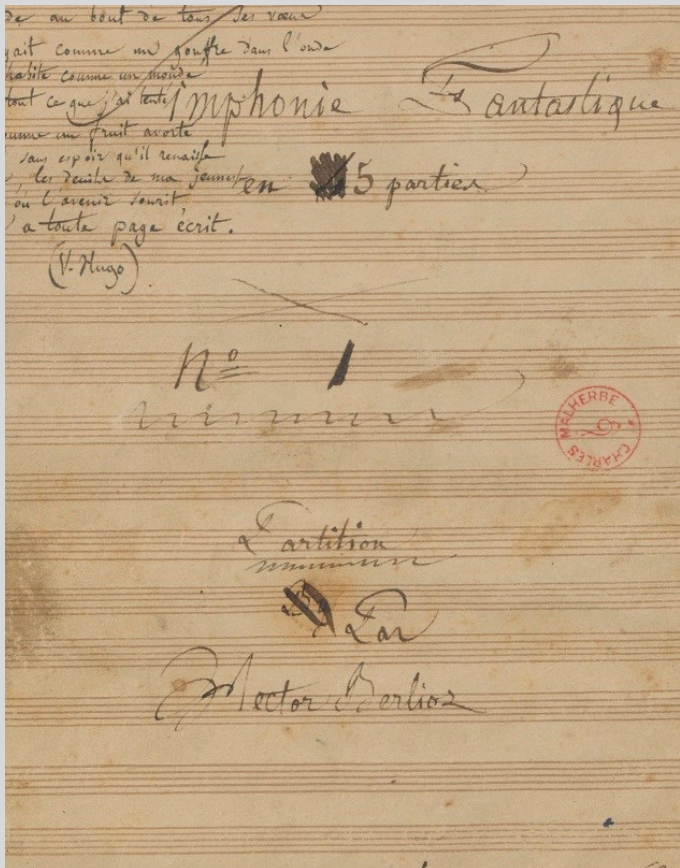 de au bout de tous ses vœux
gait comme un gouffre dans l'onde
habite comme un monde
tout ce que j'ai tenté
comme un fruit avorté
sans espoir qu'il renaisse
les deuils de ma jeunesse
où l'avenir sourit
a toute page écrit.
(V. Hugo)
Simphonie Fantastique
en 5 parties
No 1
CHARLES MALHERBE
Partition
Par
Hector Berlioz